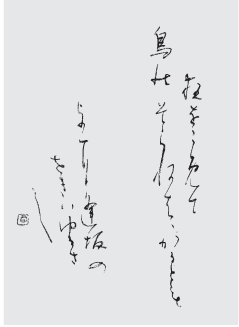 夜をこめて
鳥のそらねはゝかるとも
よに逢坂の
せきはゆるさ
し